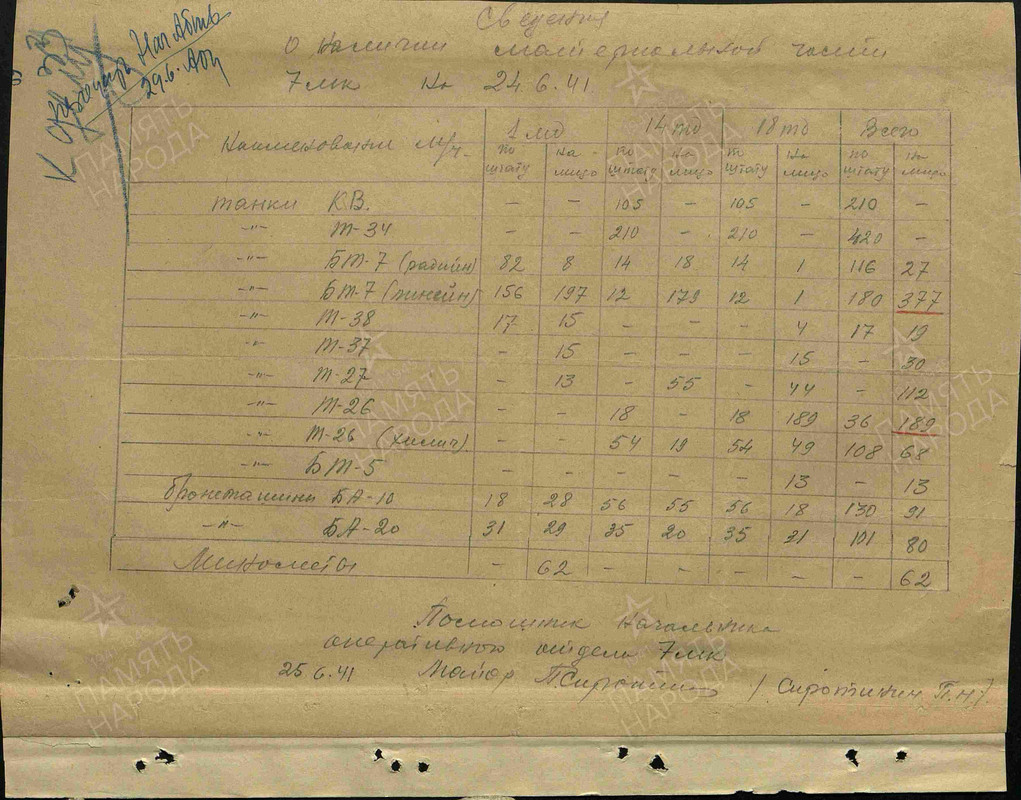 Сведения
о наличии материальной части
7 мк на 24.6.41.
29.6.
Наименование М/ч. 1 мд 14 тд 18 тд Всего
по штату на лицо по штату на лицо по штату на лицо по штату на лицо
танки К.В. – – 105 – 105 – 210 –
–"– Т-34 – – 210 – 210 – 420 –
–"– БТ-7 (радийн) 82 8 14 18 14 1 116 27
–"– БТ-7 (линейн) 156 197 12 179 12 1 180 377
–"– Т-38 17 15 – – – 4 17 19
–"– Т-37 – 15 – – – 15 – 30
–"– Т-27 – 13 – 55 – 44 – 112
–"– Т-26 – – 18 – 18 189 36 189
–"– Т-26 (химич). – – 54 19 54 49 108 68
–"– БТ-5 – – – – – 13 – 13
бронемашины БА-10 18 28 56 55 56 18 130 91
–"– БА-20 31 29 35 20 35 31 101 80
Минометы – 62 – – – – – 62
Помощник Начальника
оперативного отдела 7мк
25.6.41 Майор / Сиротинин П.Н./
ПАМЯТЬ
НАРОДА